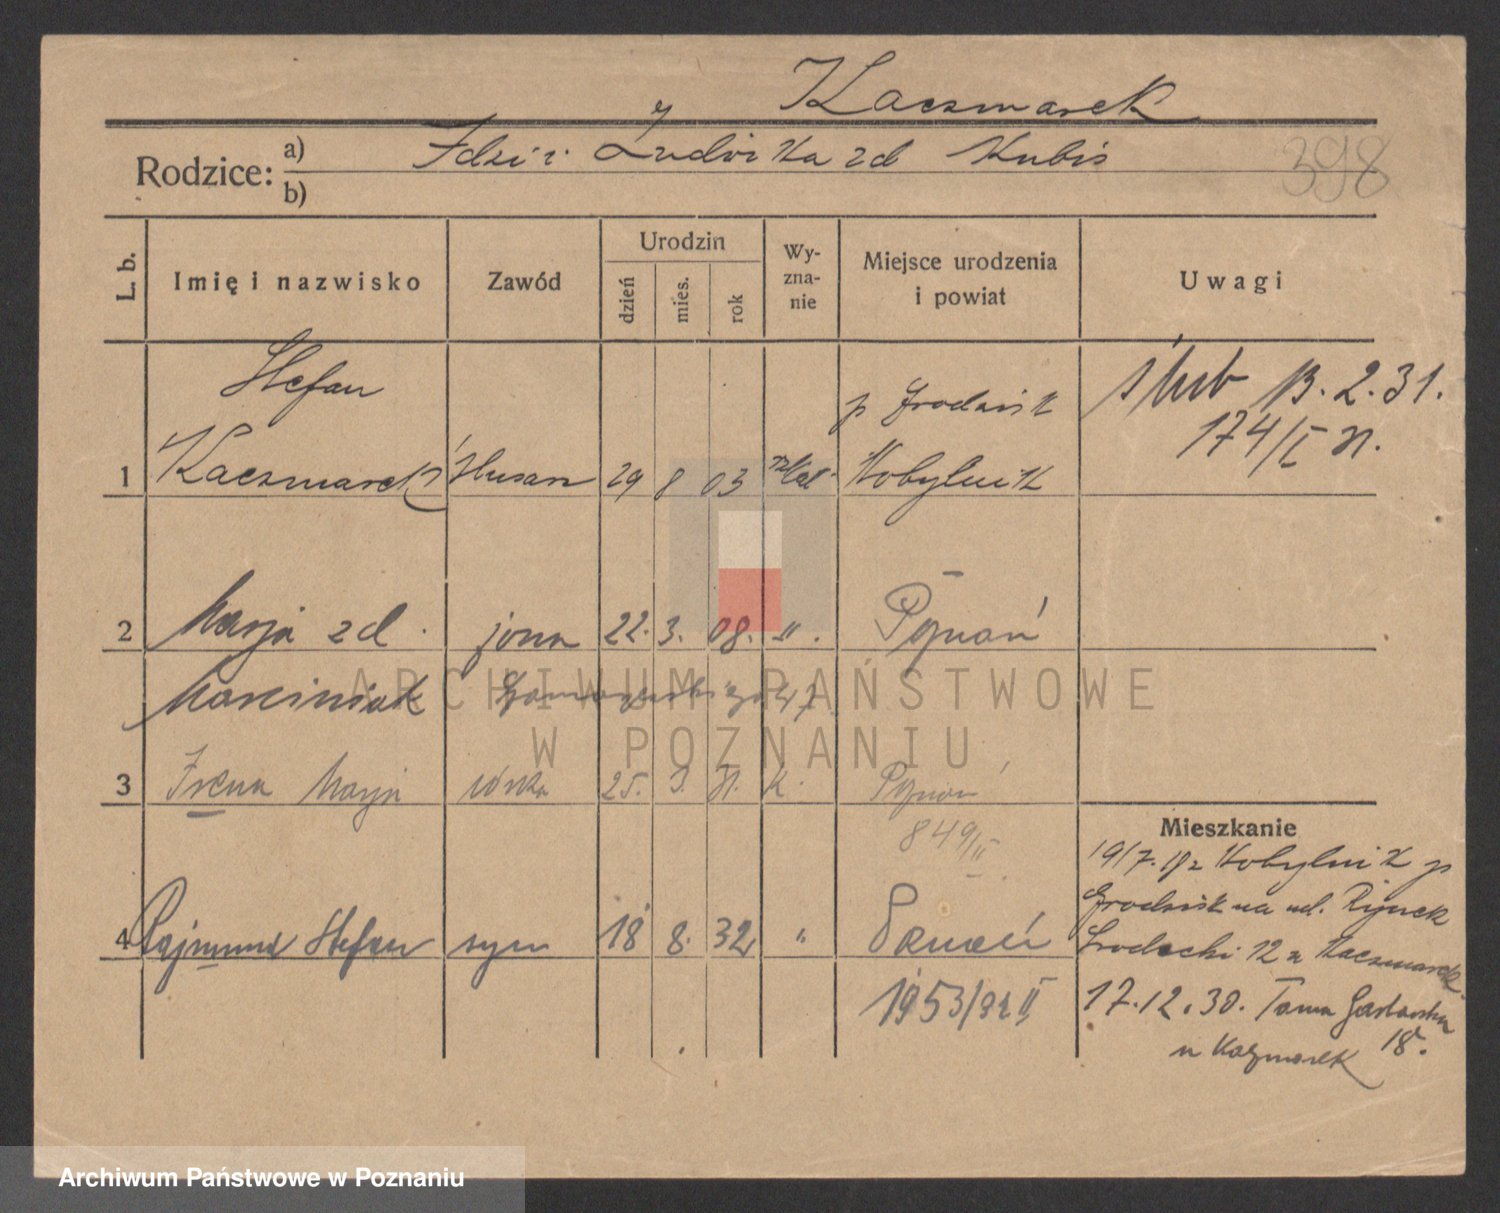 Kaczmarek
Rodzice: a) Idzi i Ludwika zd Kubiś
b)
398
L. b. Imię i nazwisko Zawód Urodzin dzień mies. rok Wy-zna-nie Miejsce urodzenia i powiat Uwagi
Stefan p Grodzisk ślub 13.2.31.
174/I
1 Kaczmarek ślusarz 29 8 03 rzkat Kobylnik
2 Marja zd. żona 22. 3. 08. " . Poznań
Marciniak 47
3 Irena Marja córka 25. 3. 31. K. Poznań
849/II
Mieszkanie
19/7.18 z Kobylnik p
Grodzisk na ul. Rynek
4 Rajmund Stefan syn 18 8. 32. " Poznań
Śródecki 12 u Kaczmarek
1953/32 II
17.12.30. Tama Garbarska
u Kaczmarek 18.
ARCHIWUM PAŃSTWOWE
W POZNANIU
Archiwum Państwowe w Poznaniu